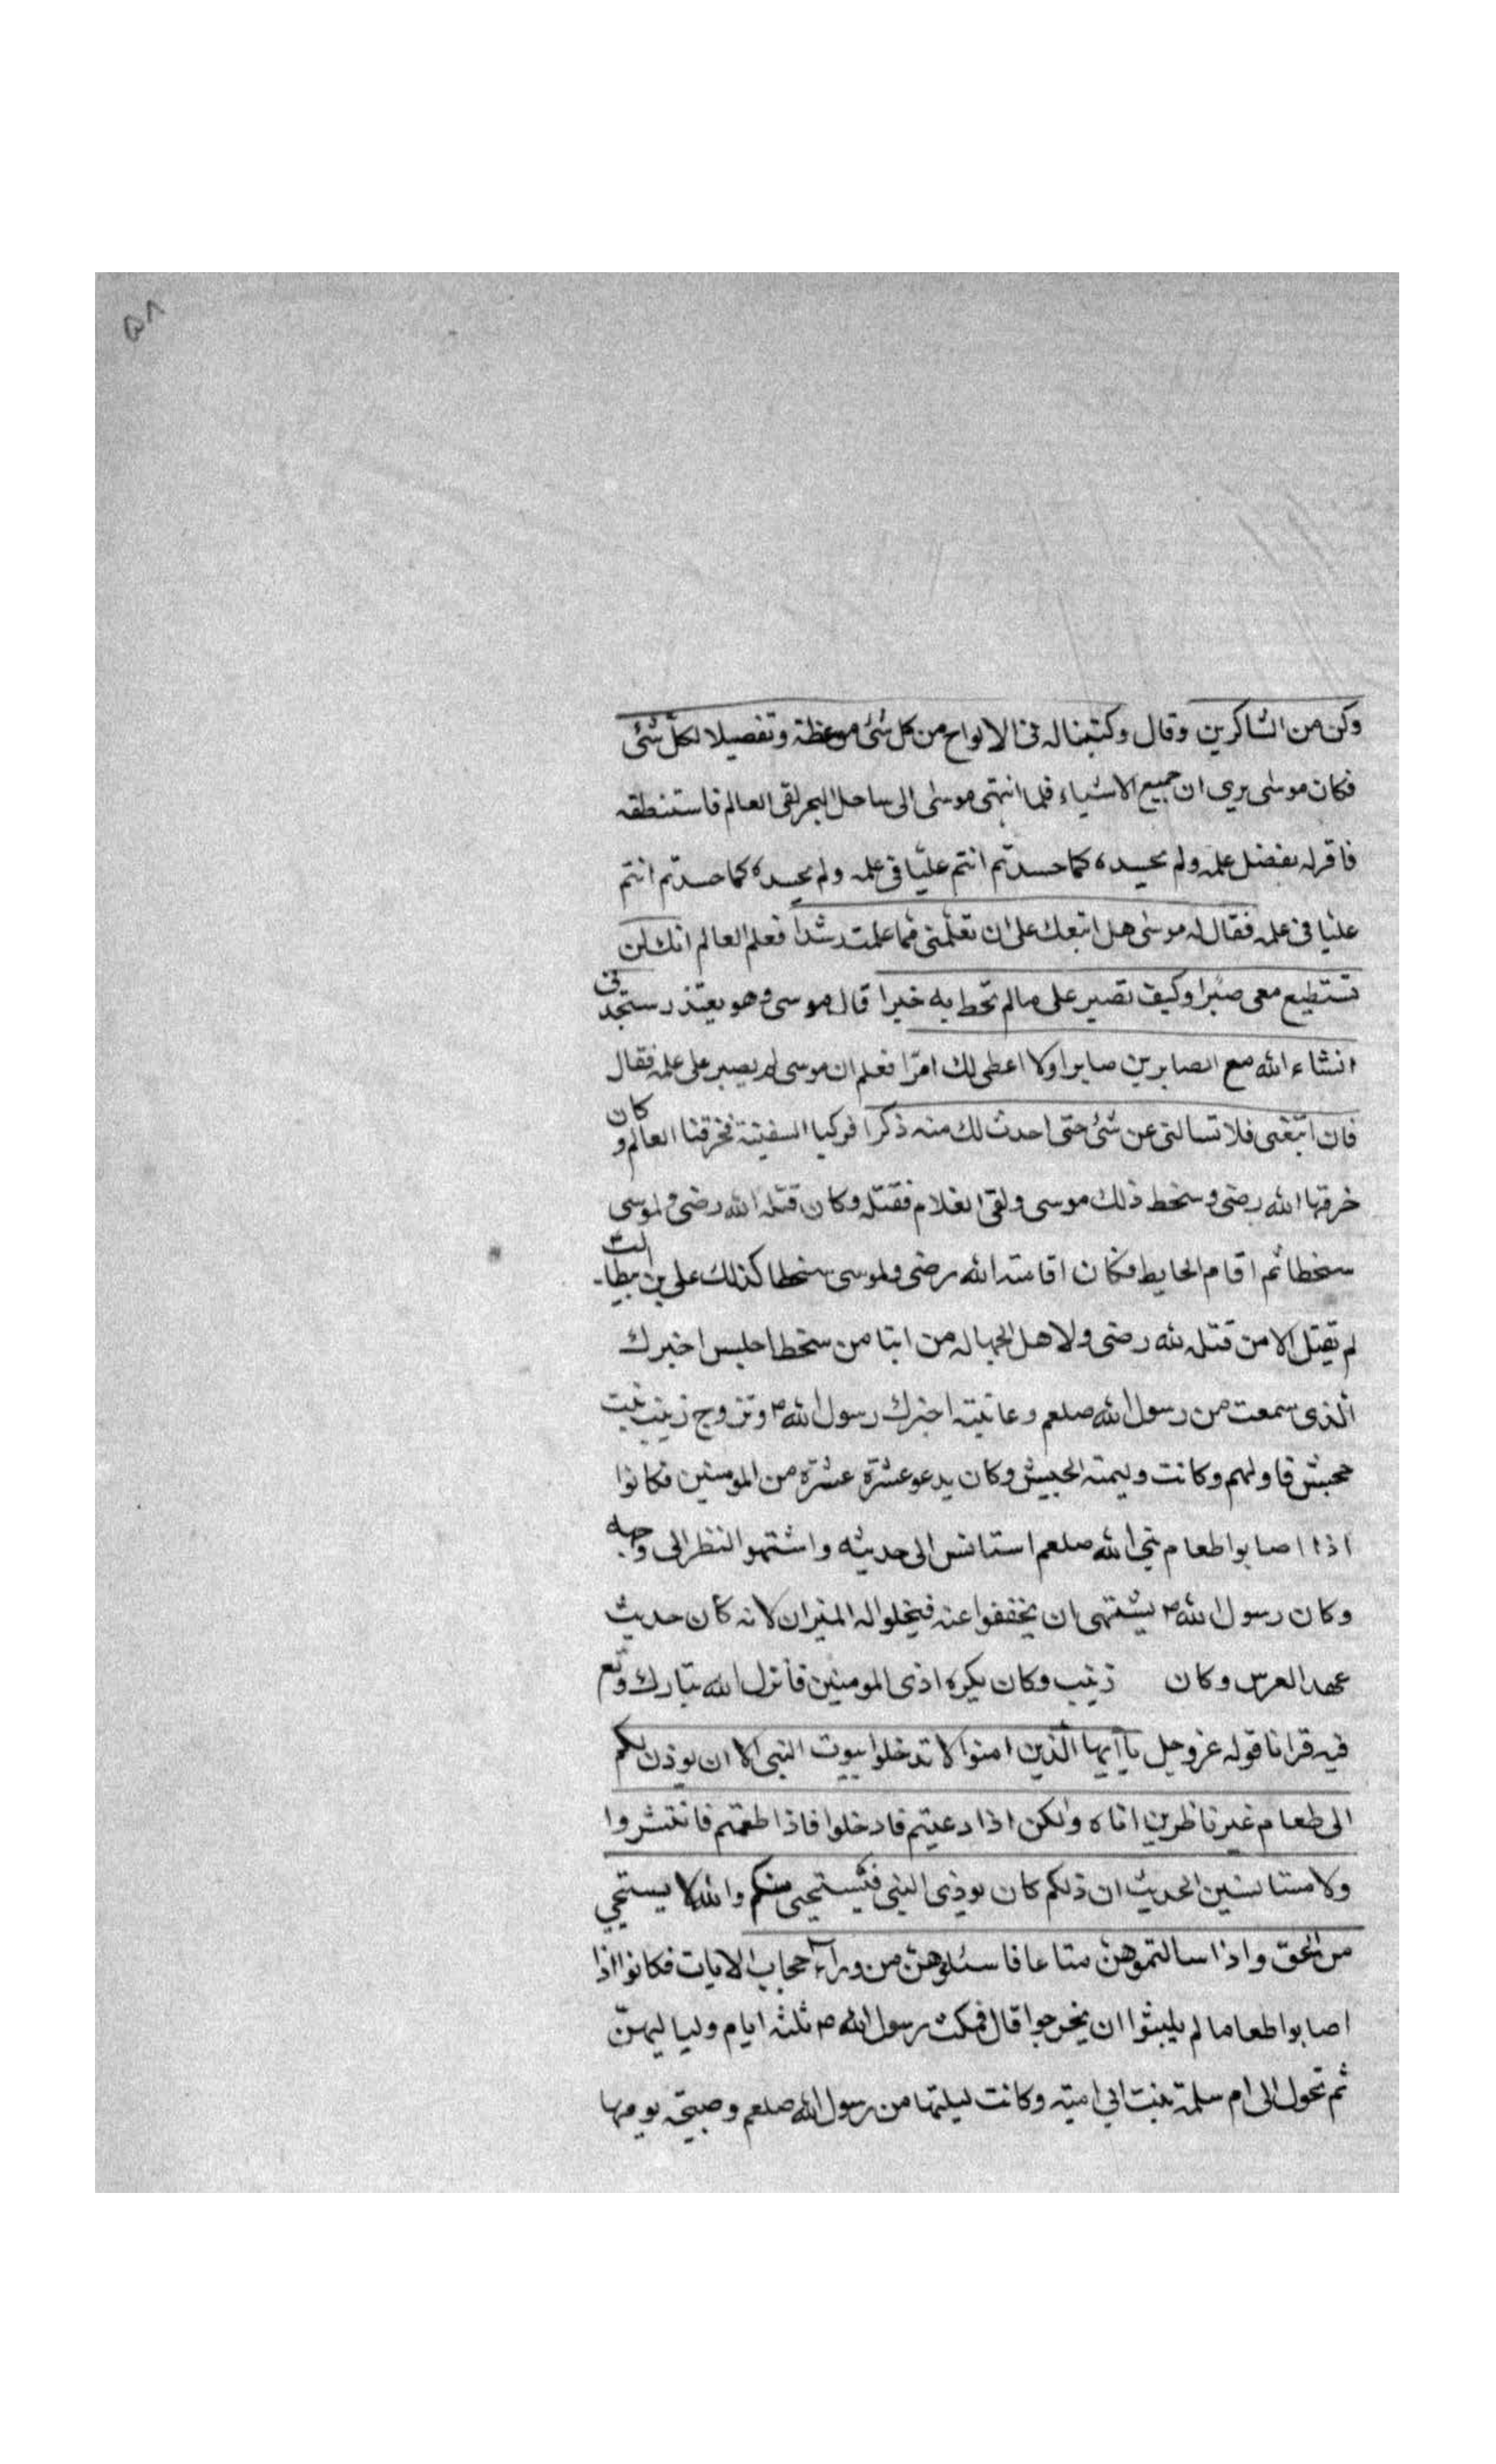 ۵۸
وكن من الشاكرين وقال وكتبناله فى الالواح من كل شئ موعظة وتفصيلا لكل شئ
فكان موسى يرى ان جميع الاشياء فلما انتهى موسى الى ساحل البحر لقى العالم فاستنطقه
فاقرله بفضل علمه ولم يحسده كما حسدتم انتم عليّا فى علمه ولم يحسده كما حسدتم انتم
عليا فى علمه فقال له موسى هل اتبعك على ان تعلمنى مما علمت رشدا فعلم العالم انك لن
تستطيع معى صبرا وكيف تصبر على مالم تحط به خبرا قال موسى وهو يعتذر ستجدنى
انشاء الله مع الصابرين صابرا ولا اعطى لك امرّا فعلم ان موسى لم يصبر على علمه فقال
فان اتبعنى فلا تسالنى عن شئ حتى احدث لك منه ذكرا فركبا السفينة فخرقنا العالم وكان
خرقها الله رضى وسخط ذلك موسى ولقى الغلام فقتله وكان قتله الله رضى ولموسى
سخطا ثم اقام الحايط فكان اقامته الله رضى ولموسى سخطا كذلك على بن بيطالب
لم يقتل الا من قتله لله رضى ولاهل الجهاله من ابتا من سخطا جلس اخبرك
الذى سمعت من رسول الله صلعم وعاتبته اخبرك رسول الله ص وتزوج زينب بنت
جحش فاولهم وكانت وليمته الحبيش وكان يدعو عشرة عشرة من المومنين فكانوا
اذا اصابوا طعام نبى الله صلعم استانس الى حديثه واشتهوا النظر الى وجهه
وكان رسول الله ص يشتهى ان يخففوا عنه فيخلوا له المنزان لانه كان حديث
عهد العرس وكان زينب وكان يكره اذى المومنين فانزل الله تبارك وتع
فيه قرانا قوله عزوجل يا ايها الذين امنوا لا تدخلوا بيوت النبى الا ان يوذن لكم
الى طعام غير ناظرين اناه ولكن اذا دعيتم فادخلوا فاذا طعمتم فانتشروا
ولا مستانسين الحديث ان ذلكم كان يوذى النبى فيستحيى منكم والله لا يستحيي
من الحق واذا سالتموهن متاعا فاسئلوهن من وراء حجاب الايات فكانوا اذا
اصابوا طعاما لم يلبثوا ان يخرجوا قال فمكث رسول الله ص ثلثه ايام ولياليهن
ثم تحول الى ام سلمة بنت ابى اميه وكانت ليلتها من رسول الله صلعم وصبيحه يومها